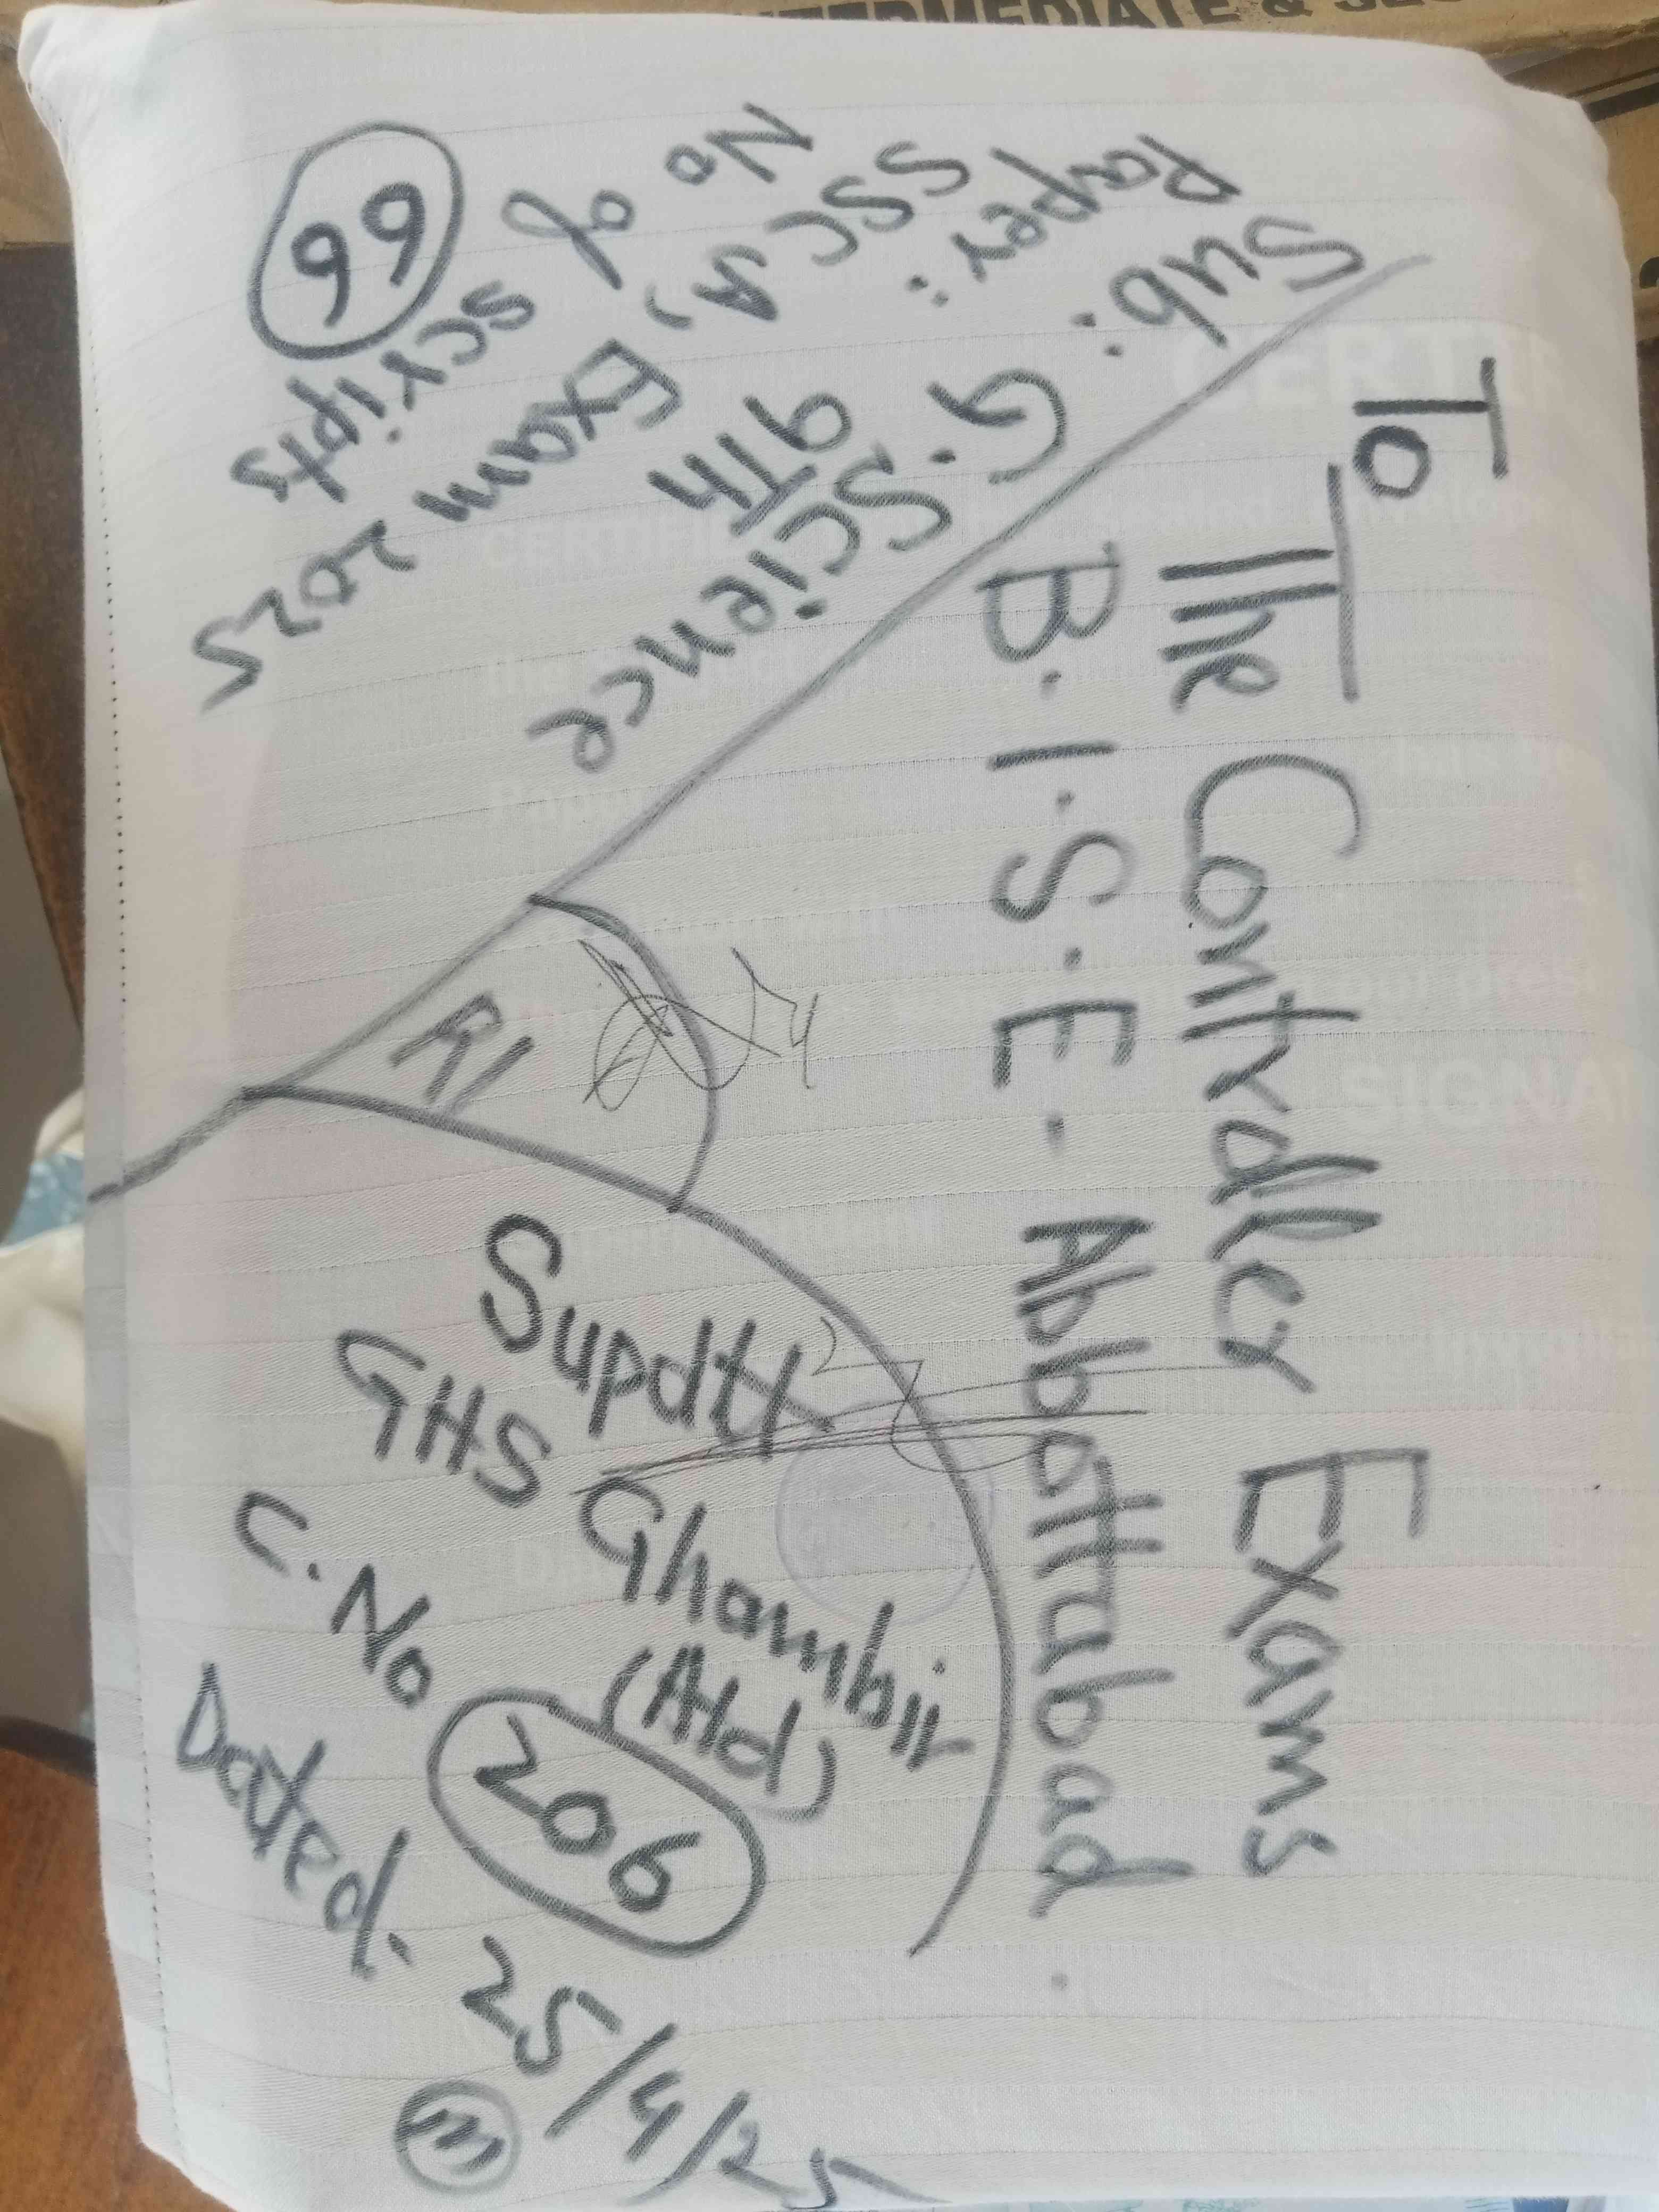 To
The Controller Exams
B.I.S.E. Abbottabad.
Sub: G.Science
Paper: 9Th
SSC A, Exam 2025
No of scripts
66
RI
Supdtt
GHS Ghambir
(Atd)
C.No 206
Dated. 25/4/25
(M)
INTERMEDIATE &